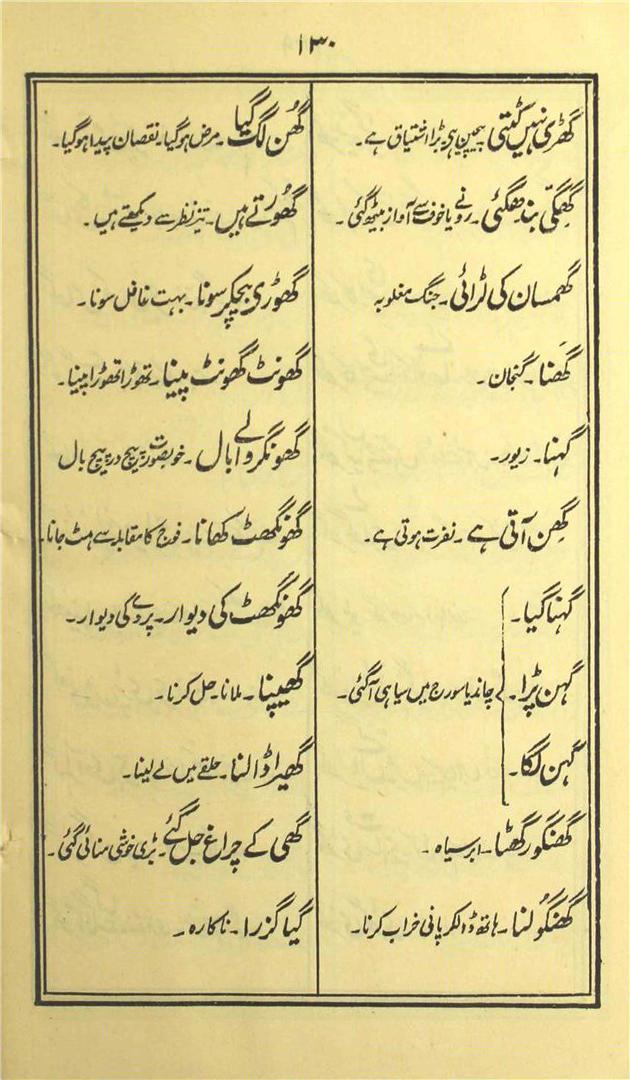 ۱۳۰
گھڑی نہیں کٹتی۔ بیچینی ہی۔ بڑا اشتیاق ہے۔
گھِگّی بندھگئی۔ رونے یا خوف سے آواز بیٹھ گئی۔
گھمسان کی لڑائی۔ جنگ مغلوبہ
گھَنا۔ گنجان۔
گہنا۔ زیور۔
گھِن آتی ہے۔ نفرت ہوتی ہے۔
گہنا گیا۔
گہن پڑا۔ چاند یا سورج میں سیاہی آ گئی۔
گہن لگا۔
گھنگور گھٹا۔ ابر سیاہ۔
گھنگولنا۔ ہاتھ ڈالکر پانی خراب کرنا۔
گھُن لگ گیا۔ مرض ہو گیا۔ نقصان پیدا ہو گیا۔
گھُورتے ہیں۔ تیز نظر سے دیکھتے ہیں۔
گھوڑی بیچکر سونا۔ بہت غافل سونا۔
گھونٹ گھونٹ پینا۔ تھوڑا تھوڑا پینا۔
گھونگر والے بال۔ خوبصورت پیچ در پیچ بال
گھونگھٹ کھانا۔ فوج کا مقابلہ سے ہٹ جانا۔
گھونگھٹ کی دیوار۔ پردے کی دیوار۔
گھیپنا۔ ملانا۔ حل کرنا۔
گھیرا ڈالنا۔ حلقے میں لے لینا۔
گھی کے چراغ جل گئے۔ بڑی خوشی منائی گئی۔
گیا گزرا۔ ناکارہ۔